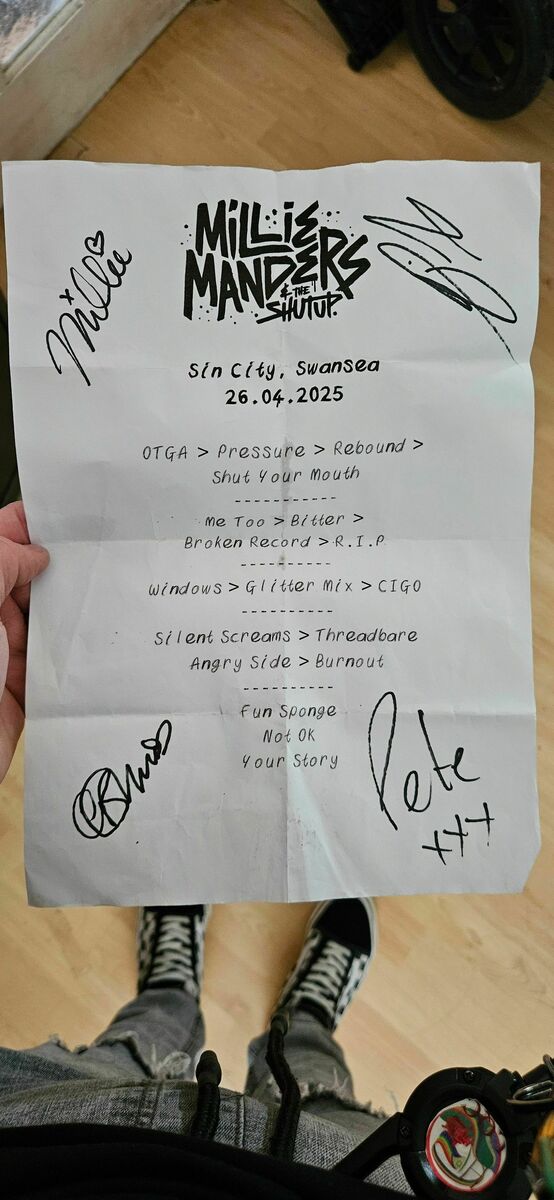 Millie
MILLIE
MANDERS
& THE
SHUTUP.
Sin City, Swansea
26.04.2025
OTGA > Pressure > Rebound >
Shut Your Mouth
-----------
Me Too > Bitter >
Broken Record > R.I.P
----------
Windows > Glitter Mix > CIGO
----------
Silent Screams > Threadbare
Angry Side > Burnout
----------
Fun Sponge
Not OK
Your Story
Pete
xxx